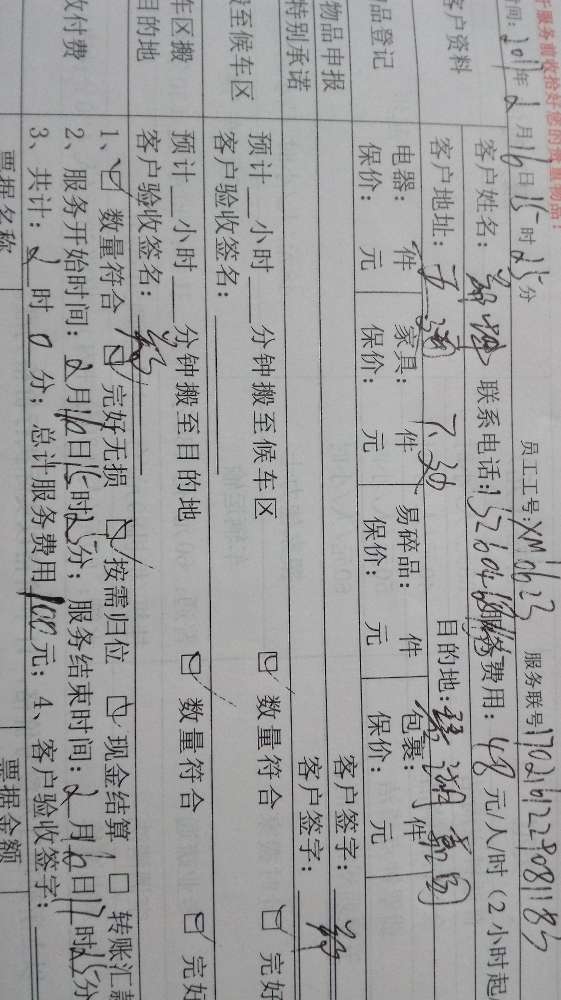 于服务前收拾好您的贵重物品！
时间：2017年2月16日15时25分 员工工号：XM0623 服务联号170216122908118
客户资料
客户姓名： 联系电话： 服务费用：48元/人/时（2小时起
客户地址： 目的地：
品登记
电器： 件 家具： 件 易碎品： 件 包裹： 件
保价： 元 保价： 元 保价： 元 保价： 元
物品申报 客户签字：
特别承诺 客户签字：
搬至候车区
预计 小时 分钟搬至候车区 数量符合 完好
客户验收签名：
车区搬
目的地
预计 小时 分钟搬至目的地 数量符合 完好
客户验收签名：
收付费
1、 数量符合 完好无损 按需归位 现金结算 转账汇款
2、服务开始时间：2月16日15时25分；服务结束时间：2月16日17时25分
3、共计：2时0分；总计服务费用100元；4、客户验收签字：
票据名称 票据金额